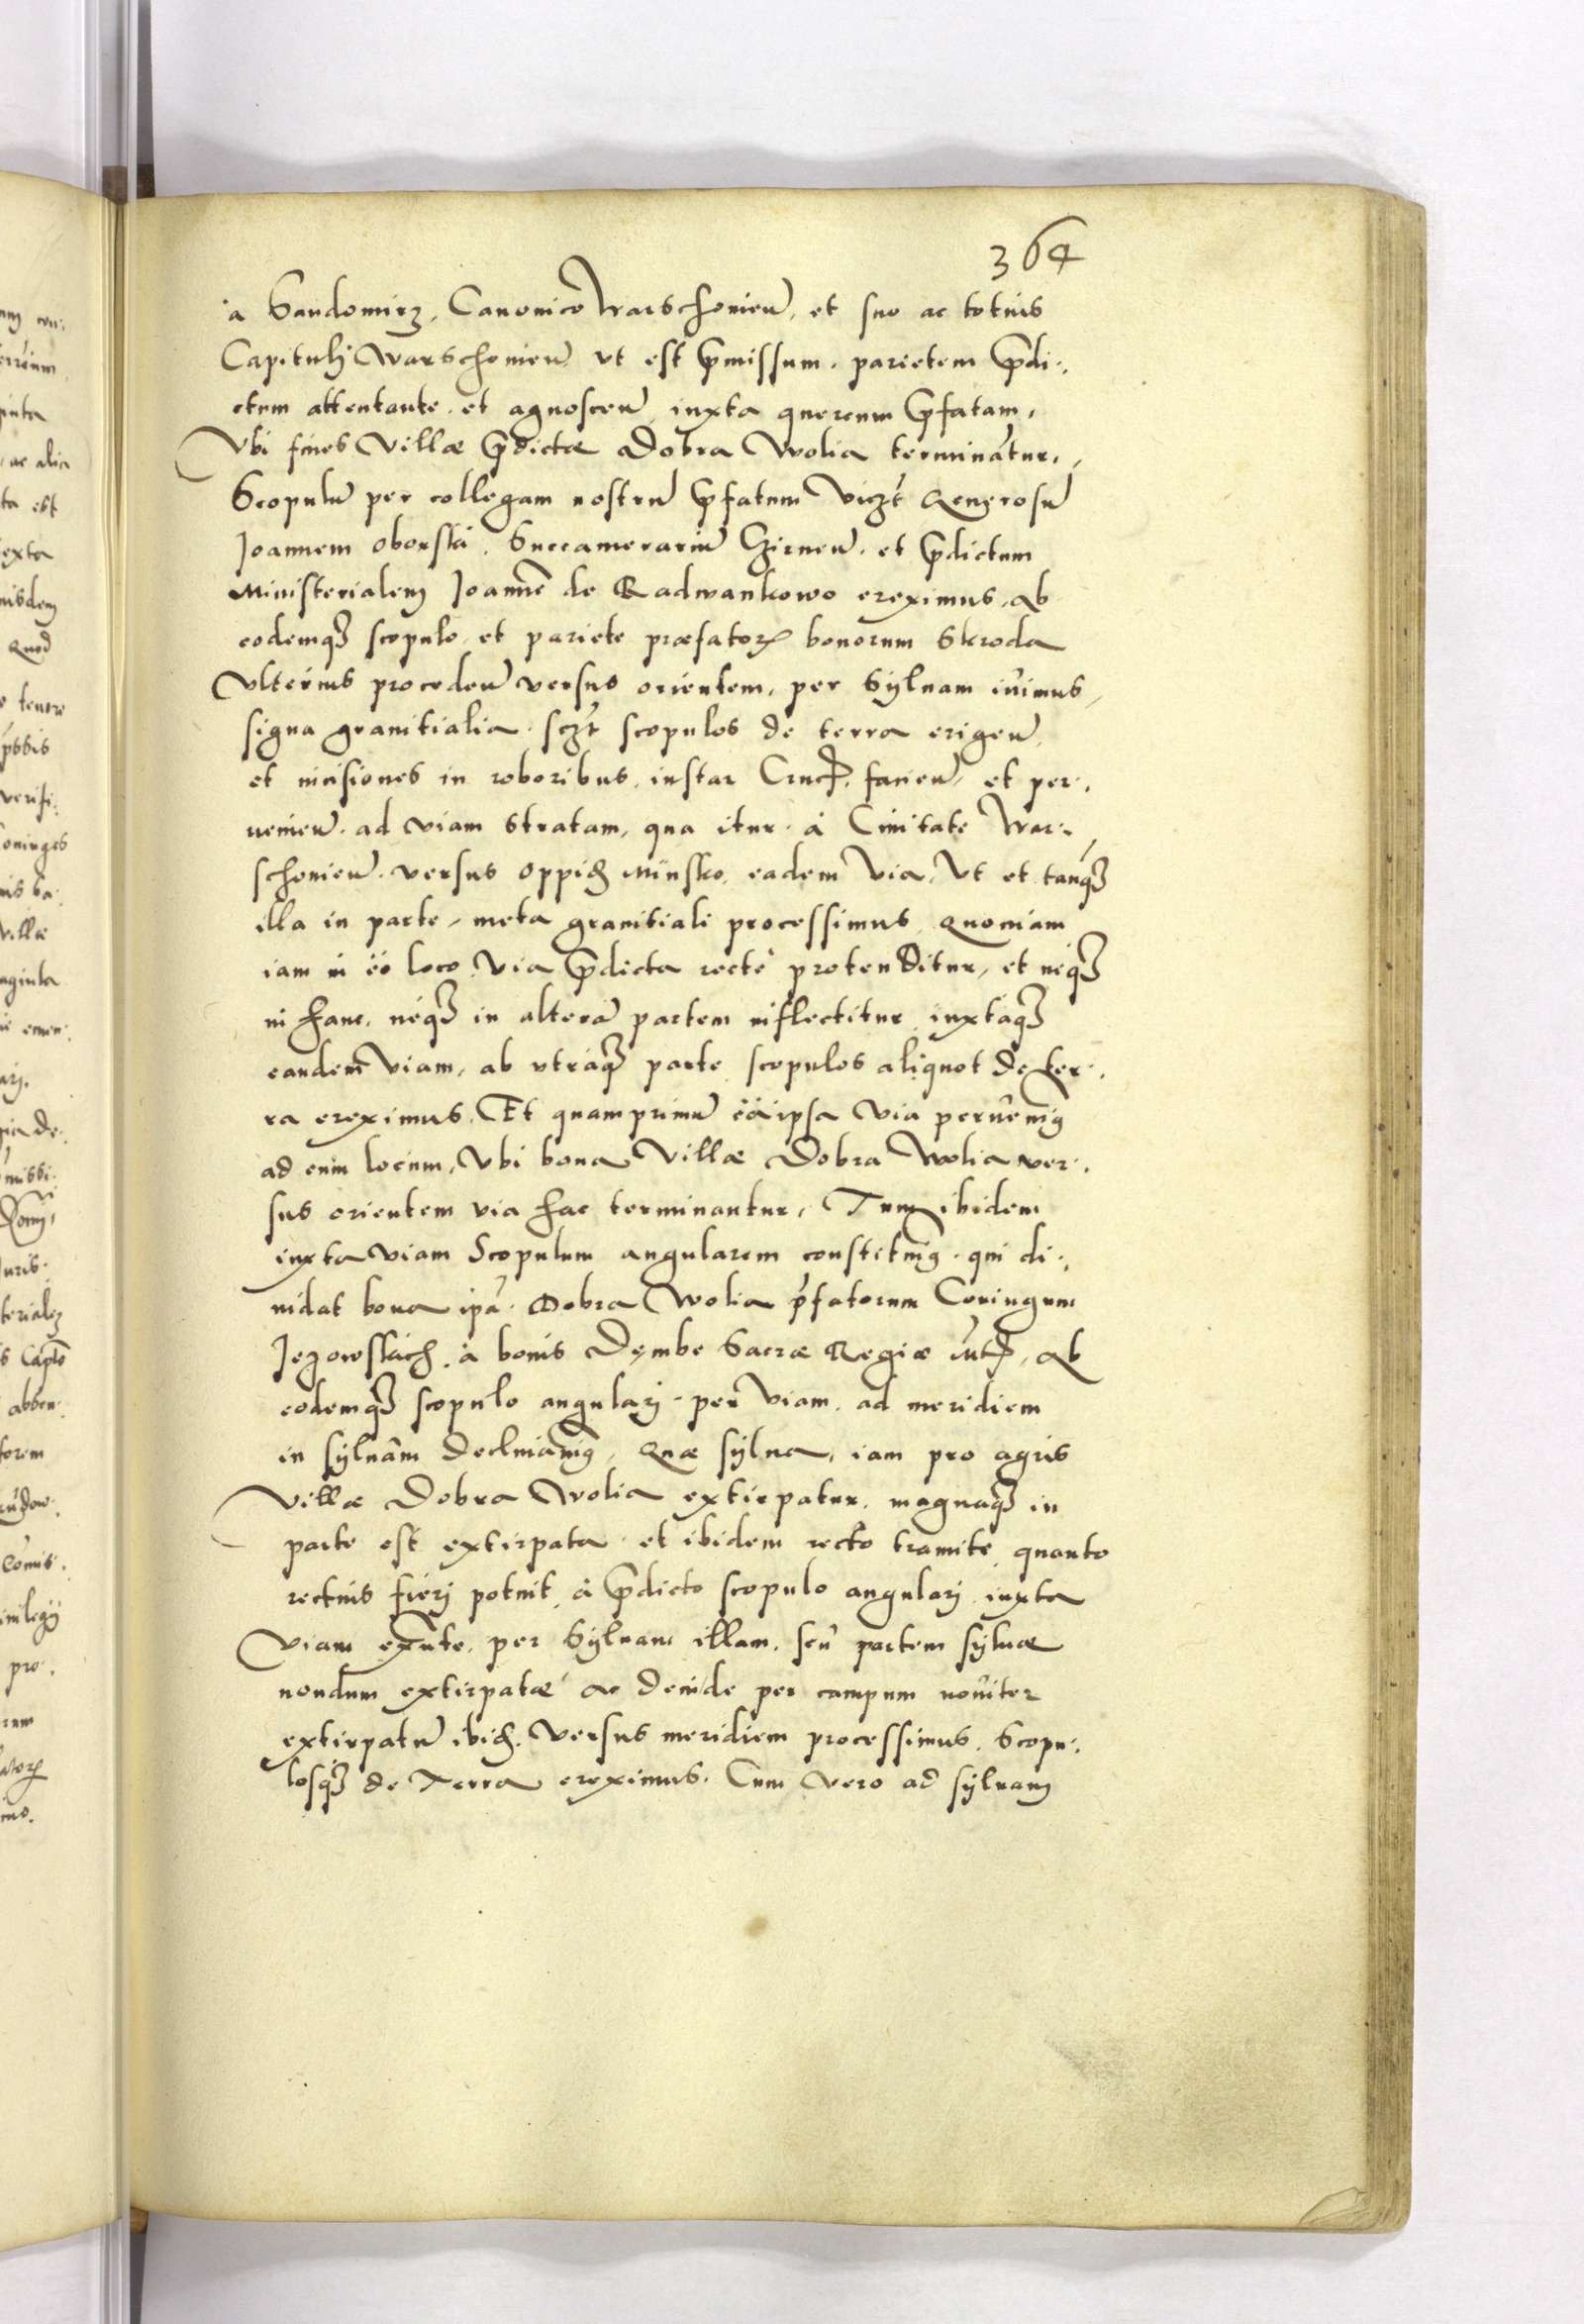 364
a Sandomirz, Canonico Warschovien̄, et suo ac totius
Capituli Warschovien̄ vt est p̄missum, parietem p̄di⸗
ctum attentante, et agnoscen̄ iuxta quercum p̄fatam,
Vbi fines Villæ p̄dictæ Dobra Wolia terminātur,
Scopulū per collegam nostrū p̄fatum viczt Generosū
Joannem Oborski, Succamerariū Czirnen̄, et p̄dictum
Ministerialem Joannē de Radwankowo ereximus, Ab
eodemq3 scopulo, et pariete præfatorꝝ bonorum Skroda
Vlterius proceden̄ versus orientem, per Syluam iuimus,
signa granitialia, sczt scopulos de terra erigen̄,
et incisiones in roboribus, instar Crucꝭ, facien̄, et per⸗
uenien̄, ad viam stratam, qua itur, à Ciuitate War⸗
schouien̄, versus Oppid Minsko, eadem Via, Vt et tanq3
illa in parte, meta granitiali processimus, Quoniam
iam in eo loco, Via p̄dicta rectè protenditur, et neq3
in hanc, neq3 in alterā partem inflectitur, iuxtaq3
eandem Viam, ab vtraq3 parte, scopulos aliquot de ter⸗
ra ereximus, Et quamprimū ea ipsa Via peruenimꝰ
ad eum locum, Vbi bona Villæ Dobra Wolia ver⸗
sus orientem via hac terminantur, Tum ibidem
iuxta viam Scopulum angularem constituimꝰ, qui di⸗
uidat bona ipā, Dobra Wolia p̄fatorum Coniugum
Jezowskich, à bonis Dęmbe Sacræ Regiæ M̄tꝭ, Ab
eodemq3 scopulo angulari, per Viam, ad meridiem
in syluam declinauimꝰ, Quæ sylua, iam pro agris
Villæ Dobra Wolia extirpatur, magnaq3 in
parte est extirpata, et ibidem recto tramite, quanto
rectius fieri potuit, à p̄dicto scopulo angulari, iuxta
Viam exn̄te, per Syluam illam, seu partem syluæ
nondum extirpatæ, ac deinde per campum nouiter
extirpatū ibid, Versus meridiem processimus, Scopu⸗
losq3 de Terra ereximus, Cum vero ad syluam